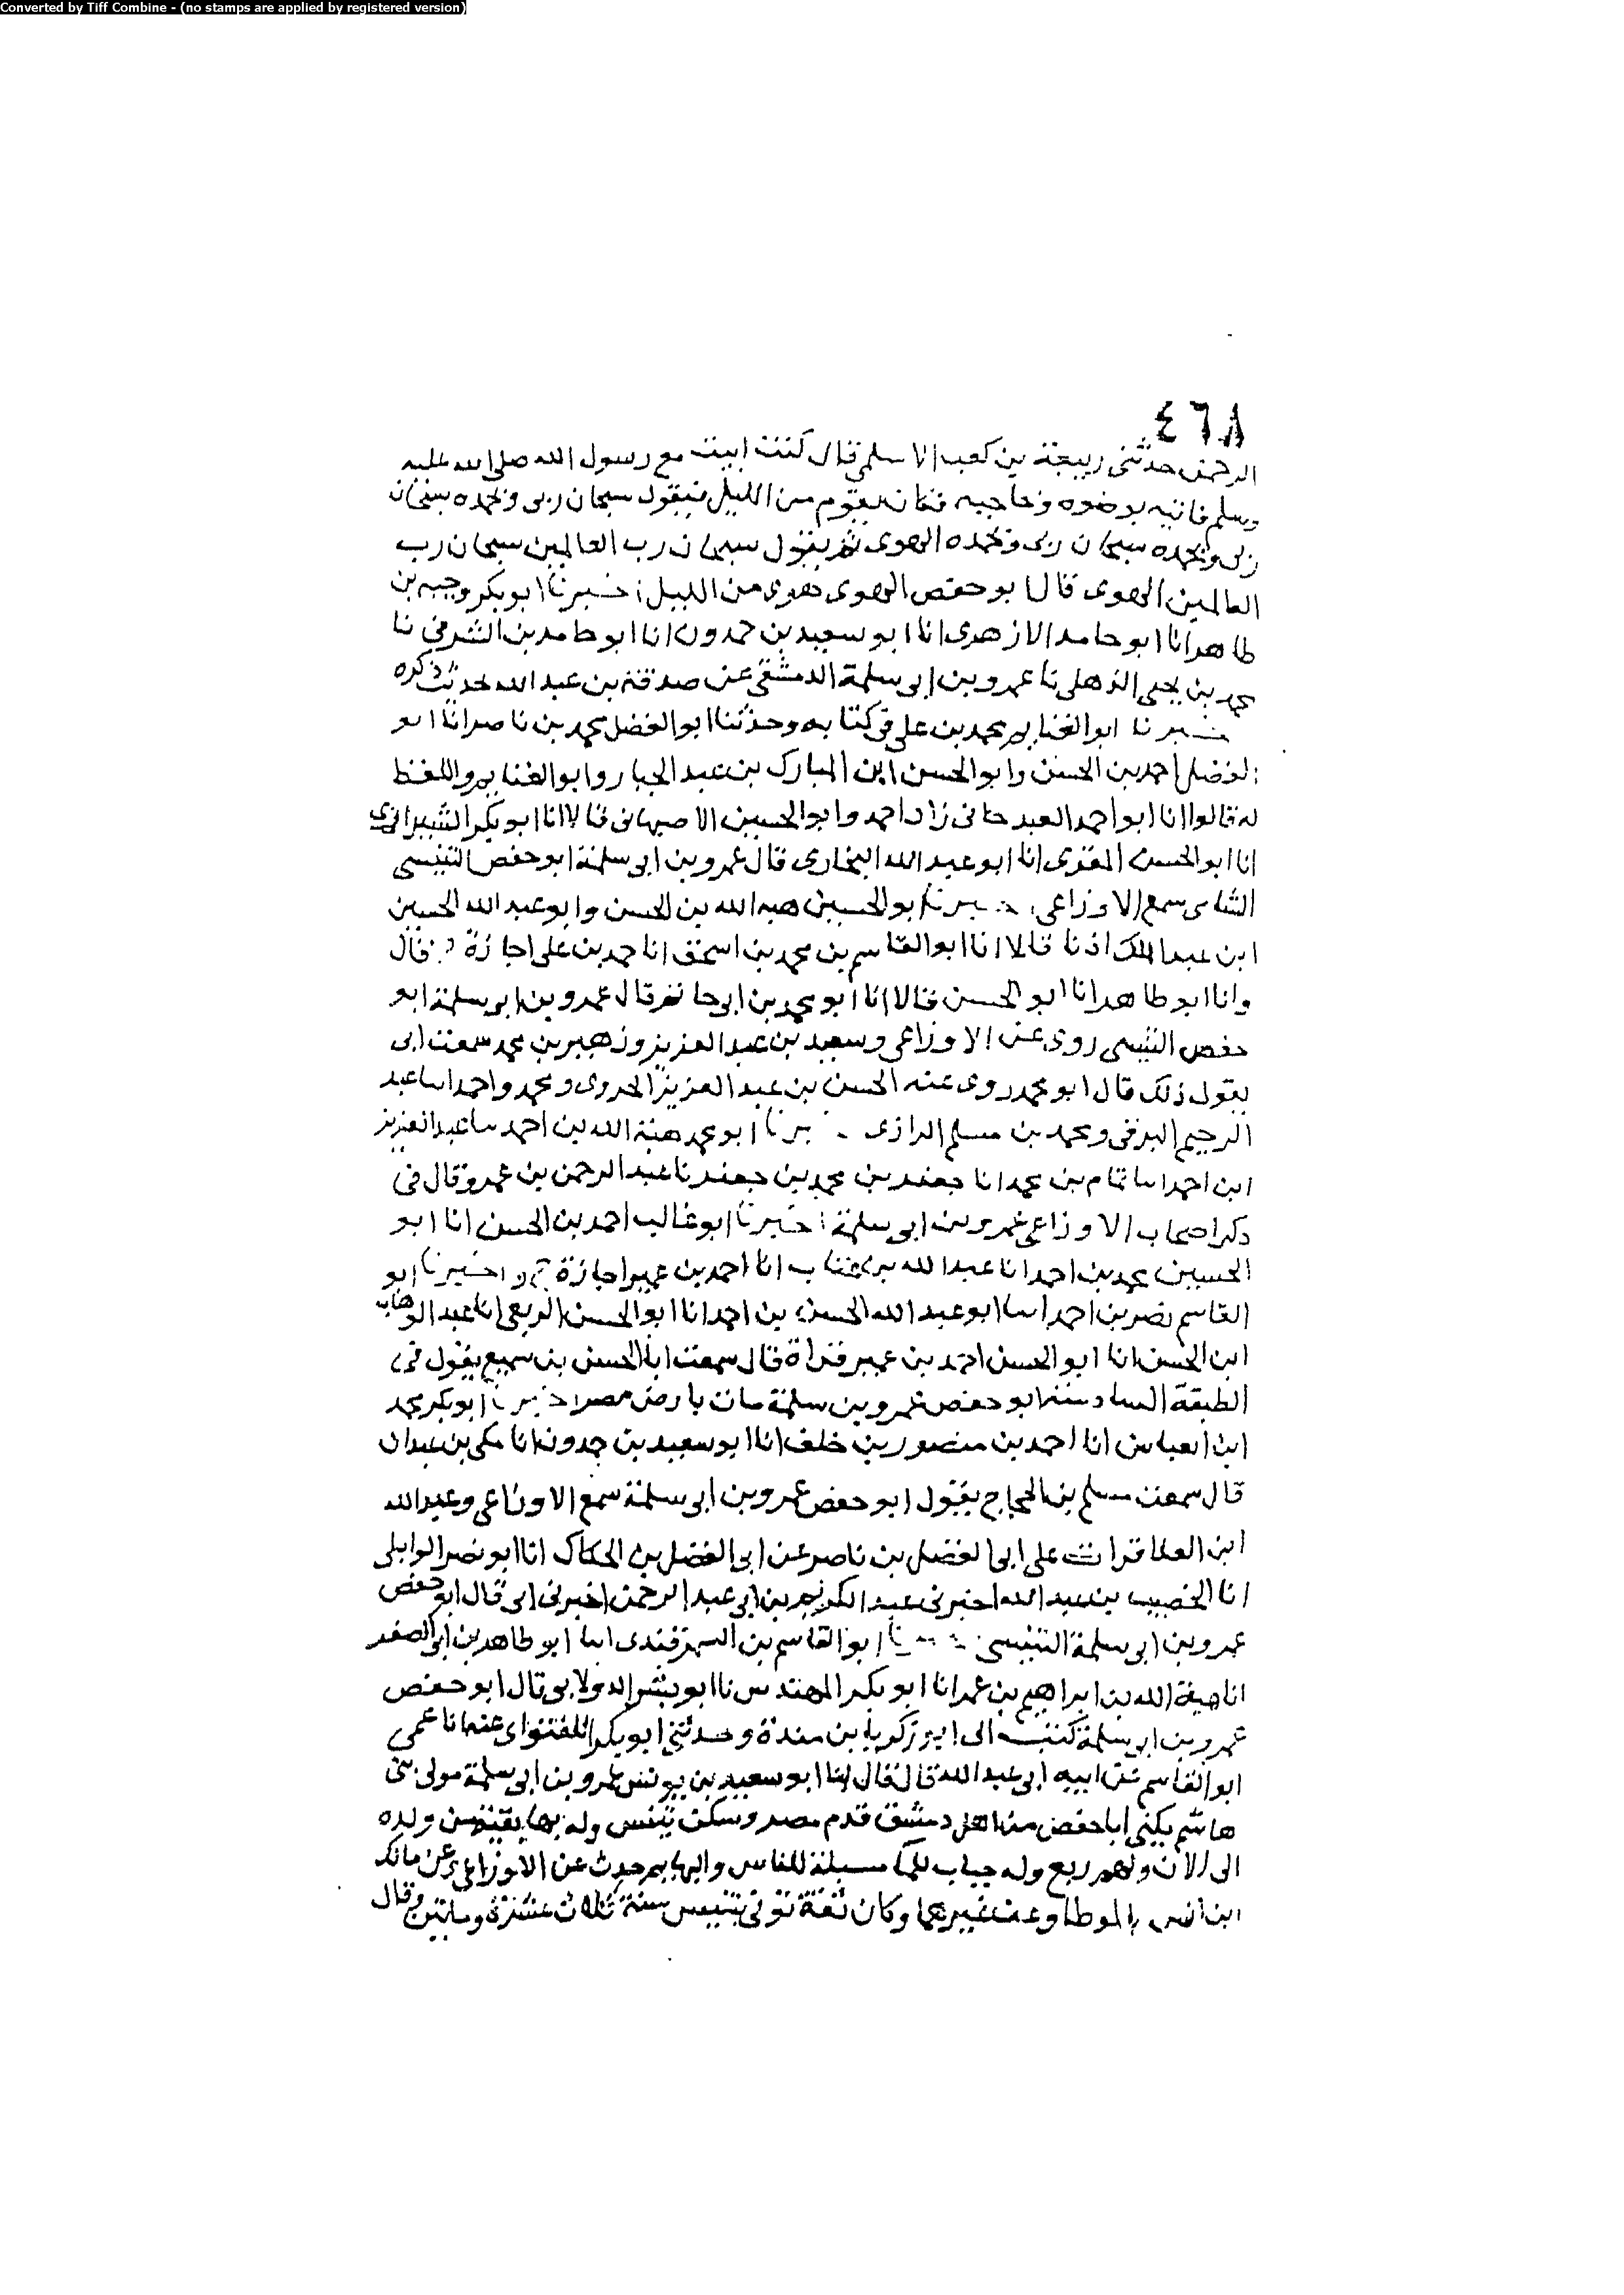 Converted by Tiff Combine - (no stamps are applied by registered version)
٤٦٨
الرحمن حدثنى ربيعة بن كعب الاسلمى قال كنت ابيت مع رسول الله صلى الله عليه
وسلم فاتيه بوضوه وحاجته فكان يقوم من الليل فيقول سبحان ربى وبحمده سبحان
ربى وبحمده سبحان ربى وبحمده الهوى ثم يقول سبحان رب العالمين سبحان رب
العالمين الهوى قال ابو حفص الهوى دهوى من الليل اخبرنا ابو بكر وجيه بن
طاهر انا ابو حامد الازهرى انا ابو سعيد بن حمدون انا ابو حامد بن الشرقى نا
محمد بن يحيى الذهلى نا عمرو بن ابى سلمة الدمشقى عن صدقة بن عبد الله بحديث ذكره
اخبرنا ابو الغنايم محمد بن على فى كتابه وحدثنا ابو الفضل محمد بن ناصر انا ابو
الفضل احمد بن الحسن وابو الحسن ابن المبارك بن عبد الجبار وابو الغنايم واللفظ
له قالوا انا ابو احمد العبدجانى زاد احمد وابو الحسين الاصبهانى قالا انا ابو بكر الشيرازى
انا ابو الحسن المقرى انا ابو عبد الله البخارى قال عمرو بن ابى سلمة ابو حفص التنيسى
الشامى سمع الاوزاعى اخبرنا ابو الحسين هبه الله بن الحسن وابو عبد الله الحسين
ابن عبد الملك اذنا قالا انا ابو القاسم بن محمد بن اسحق انا حمد بن على اجازة ح قال
وانا ابو طاهر انا ابو الحسن قالا انا ابو محمد بن ابى حاتم قال عمرو بن ابى سلمة ابو
حفص التنيسى روى عن الاوزاعى وسعيد بن عبد العزيز وزهير بن محمد سمعت ابى
يقول ذلك قال ابو محمد روى عنه الحسن بن عبد العزيز الجروى ومحمد واحمد ابنا عبد
الرحيم البرقى ومحمد بن مسلم الرازى اخبرنا ابو محمد هبة الله بن احمد نا عبد العزيز
ابن احمد انا تمام بن محمد انا جعفر بن محمد بن جعفر نا عبد الرحمن بن عمرو قال فى
ذكر اصحاب الاوزاعى عمرو بن ابى سلمة اخبرنا ابو غالب احمد بن الحسن انا ابو
الحسين محمد بن احمد انا عبد الله بن عتاب انا احمد بن عمير اجازة ح واخبرنا ابو
القاسم نصر بن احمد انا ابو عبد الله الحسن بن احمد انا ابو الحسن الربعى انا عبد الوهاب
ابن الحسن انا ابو الحسن احمد بن عمير قراة قال سمعت ابا الحسن بن سميع يقول فى
الطبقة السادسة ابو حفص عمرو بن سلمة مات بارض مصر اخبرنا ابو بكر محمد
ابن العباس انا احمد بن منصور بن خلف انا ابو سعيد بن حمدون انا مكى بن عبدان
قال سمعت مسلم بن الحجاج يقول ابو حفص عمرو بن ابى سلمة سمع الاوزاعى وعبد الله
ابن العلا قرات على ابى الفضل بن ناصر عن ابى الفضل بن الحكاك انا ابو نصر الوابلى
انا الخصيب بن عبد الله اخبرنى عبد الكريم بن ابى عبد الرحمن اخبرنى ابى قال ابو حفص
عمرو بن ابى سلمة التنيسى اخبرنا ابو القاسم بن السمرقندى انا ابو طاهر بن ابى الصقر
انا هبة الله بن ابراهيم بن عمر انا ابو بكر المهندس نا ابو بشر الدولابى قال ابو حفص
عمرو بن ابى سلمة كتب الى ابو زكريا بن مندة وحدثنى ابو بكر اللفتوانى عنه انا عمى
ابو القاسم عن ابيه ابى عبد الله قال قال لنا ابو سعيد بن يونس عمرو بن ابى سلمة مولى بنى
هاشم يكنى ابا حفص من اهل دمشق قدم مصر وسكن تنيس وله بها بقية من ولده
الى الان ولهم ربع وله جباب للما مسبلة للناس واليها حدث عن الاوزاعى وعن مالك
ابن انس بالموطا وعن غيرهما وكان ثقة توفى بتنيس سنة ثلاث عشرة وماتين وقال